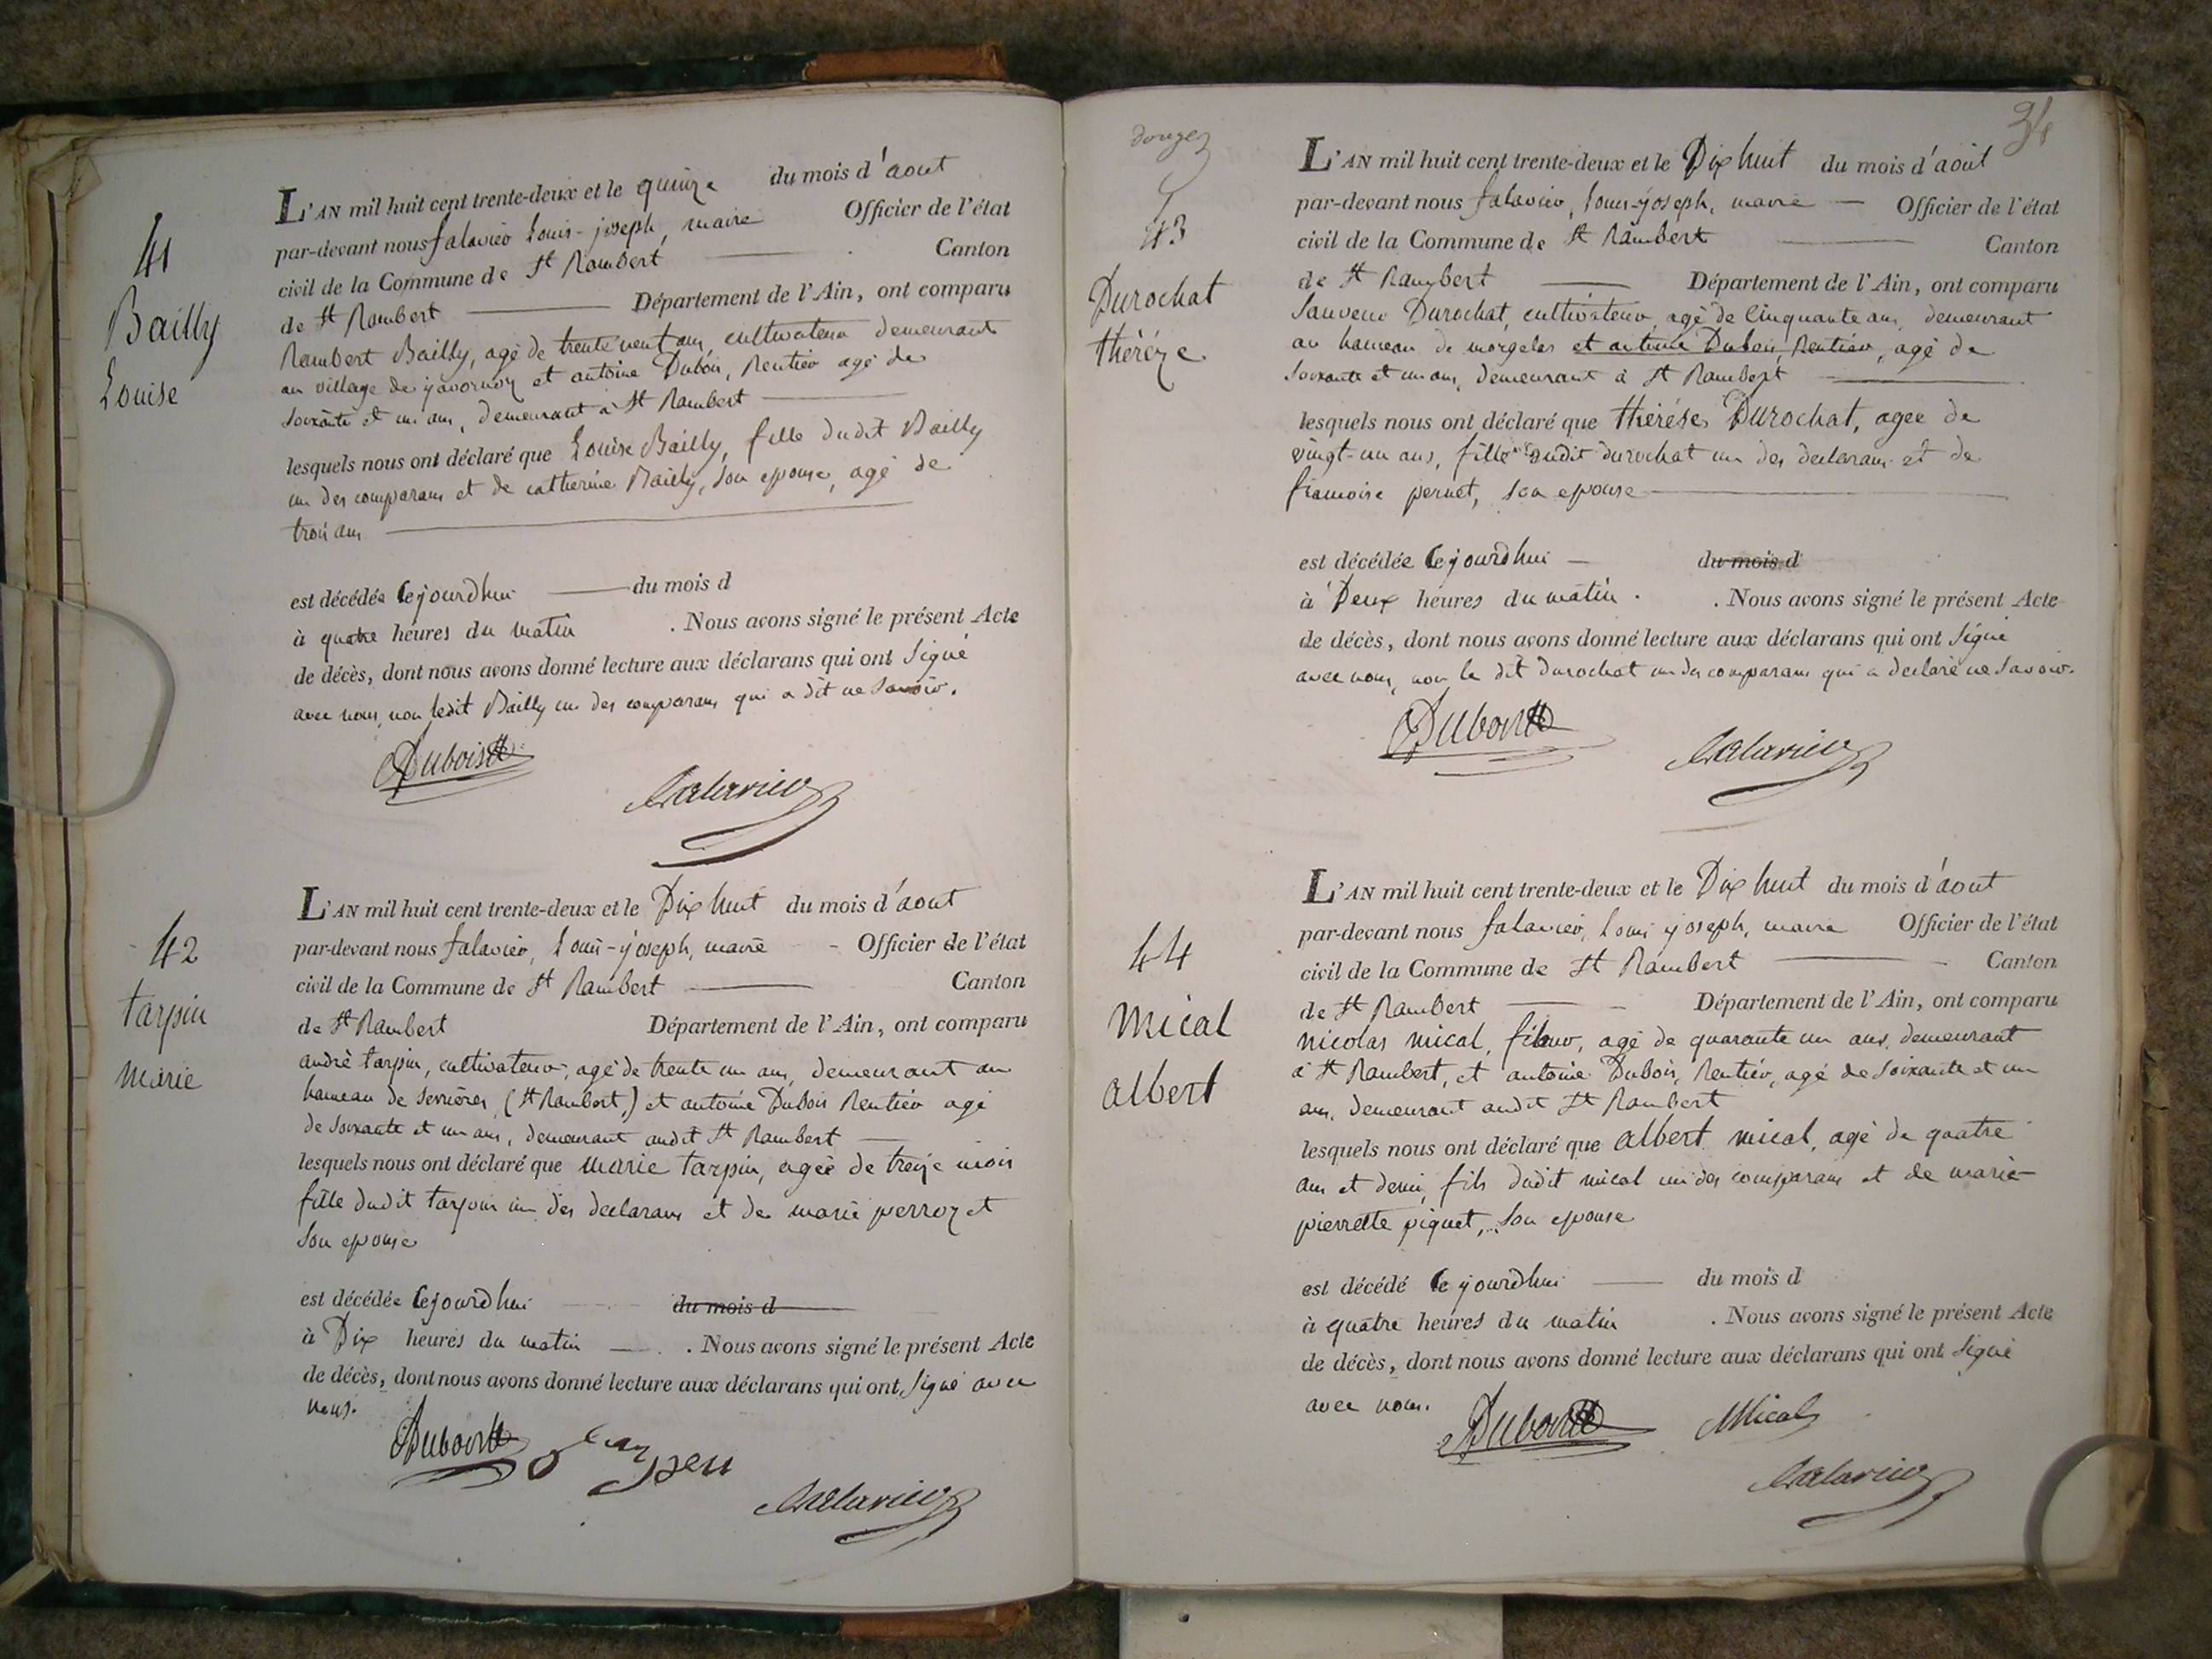 41
Bailly
Louise
L'AN mil huit cent trente-deux et le quinze du mois d'aout
par-devant nous falavier Louis-joseph, maire Officier de l'état
civil de la Commune de St Rambert Canton
de St Rambert Département de l'Ain, ont comparu
Rambert Bailly, agé de trente neuf ans, cultivateur demeurant
au village de javornoz et antoine Dubois, Rentier agé de
soixante et un ans, demeurant à St Rambert
lesquels nous ont déclaré que Louise Bailly, fille dudit Bailly
un des comparans et de catherine Bailly, son epouse, agé de
trois ans
est décédée cejourdhui du mois d
à quatre heures du matin . Nous avons signé le présent Acte
de décès, dont nous avons donné lecture aux déclarans qui ont signé
avec nous, non ledit Bailly un des comparans qui a dit ne savoir.
Dubois
falavier
42
tarpin
marie
L'AN mil huit cent trente-deux et le Dix huit du mois d'aout
par-devant nous falavier, Louis-joseph, maire Officier de l'état
civil de la Commune de St Rambert Canton
de St Rambert Département de l'Ain, ont comparu
andré tarpin, cultivateur, agé de trente un ans, demeurant au
hameau de serrières, (St Rambert,) et antoine Dubois Rentier agé
de soixante et un ans, demeurant audit St Rambert
lesquels nous ont déclaré que marie tarpin, agée de treize mois
fille dudit tarpin un des declarans et de marie perrozet
son epouse
est décédée cejourdhui du mois d
à Dix heures du matin . Nous avons signé le présent Acte
de décès, dont nous avons donné lecture aux déclarans qui ont signé avec
nous.
Dubois
falavier
34
douze
43
Durochat
thérèze
L'AN mil huit cent trente-deux et le Dix huit du mois d'août
par-devant nous falavier, Louis-joseph, maire Officier de l'état
civil de la Commune de St Rambert Canton
de St Rambert Département de l'Ain, ont comparu
Sauveur Durochat, cultivateur, agé de Cinquante ans, demeurant
au hameau de morgelas et antoine Dubois Rentier, agé de
soixante et un ans, demeurant à St Rambert
lesquels nous ont déclaré que thérèse Durochat, agée de
vingt-un ans, fille dudit durochat un des declarans et de
francoise pernet, son epouse
est décédée cejourdhui du mois d
à Deux heures du matin . Nous avons signé le présent Acte
de décès, dont nous avons donné lecture aux déclarans qui ont signé
avec nous, non le dit durochat un des comparans qui a declaré ne savoir.
Dubois
falavier
44
mical
albert
L'AN mil huit cent trente-deux et le Dix huit du mois d'aout
par-devant nous falavier, Louis joseph, maire Officier de l'état
civil de la Commune de St Rambert Canton
de St Rambert Département de l'Ain, ont comparu
nicolas mical, fileur, agé de quarante un ans, demeurant
à St Rambert, et antoine Dubois, Rentier, agé de soixante et un
ans, demeurant audit St Rambert
lesquels nous ont déclaré que albert mical, agé de quatre
ans et demi, fils dudit mical un des comparans et de marie
pierrette piquet, son epouse
est décédé cejourdhui du mois d
à quatre heures du matin . Nous avons signé le présent Acte
de décès, dont nous avons donné lecture aux déclarans qui ont signé
avec nous.
Dubois
Mical
falavier